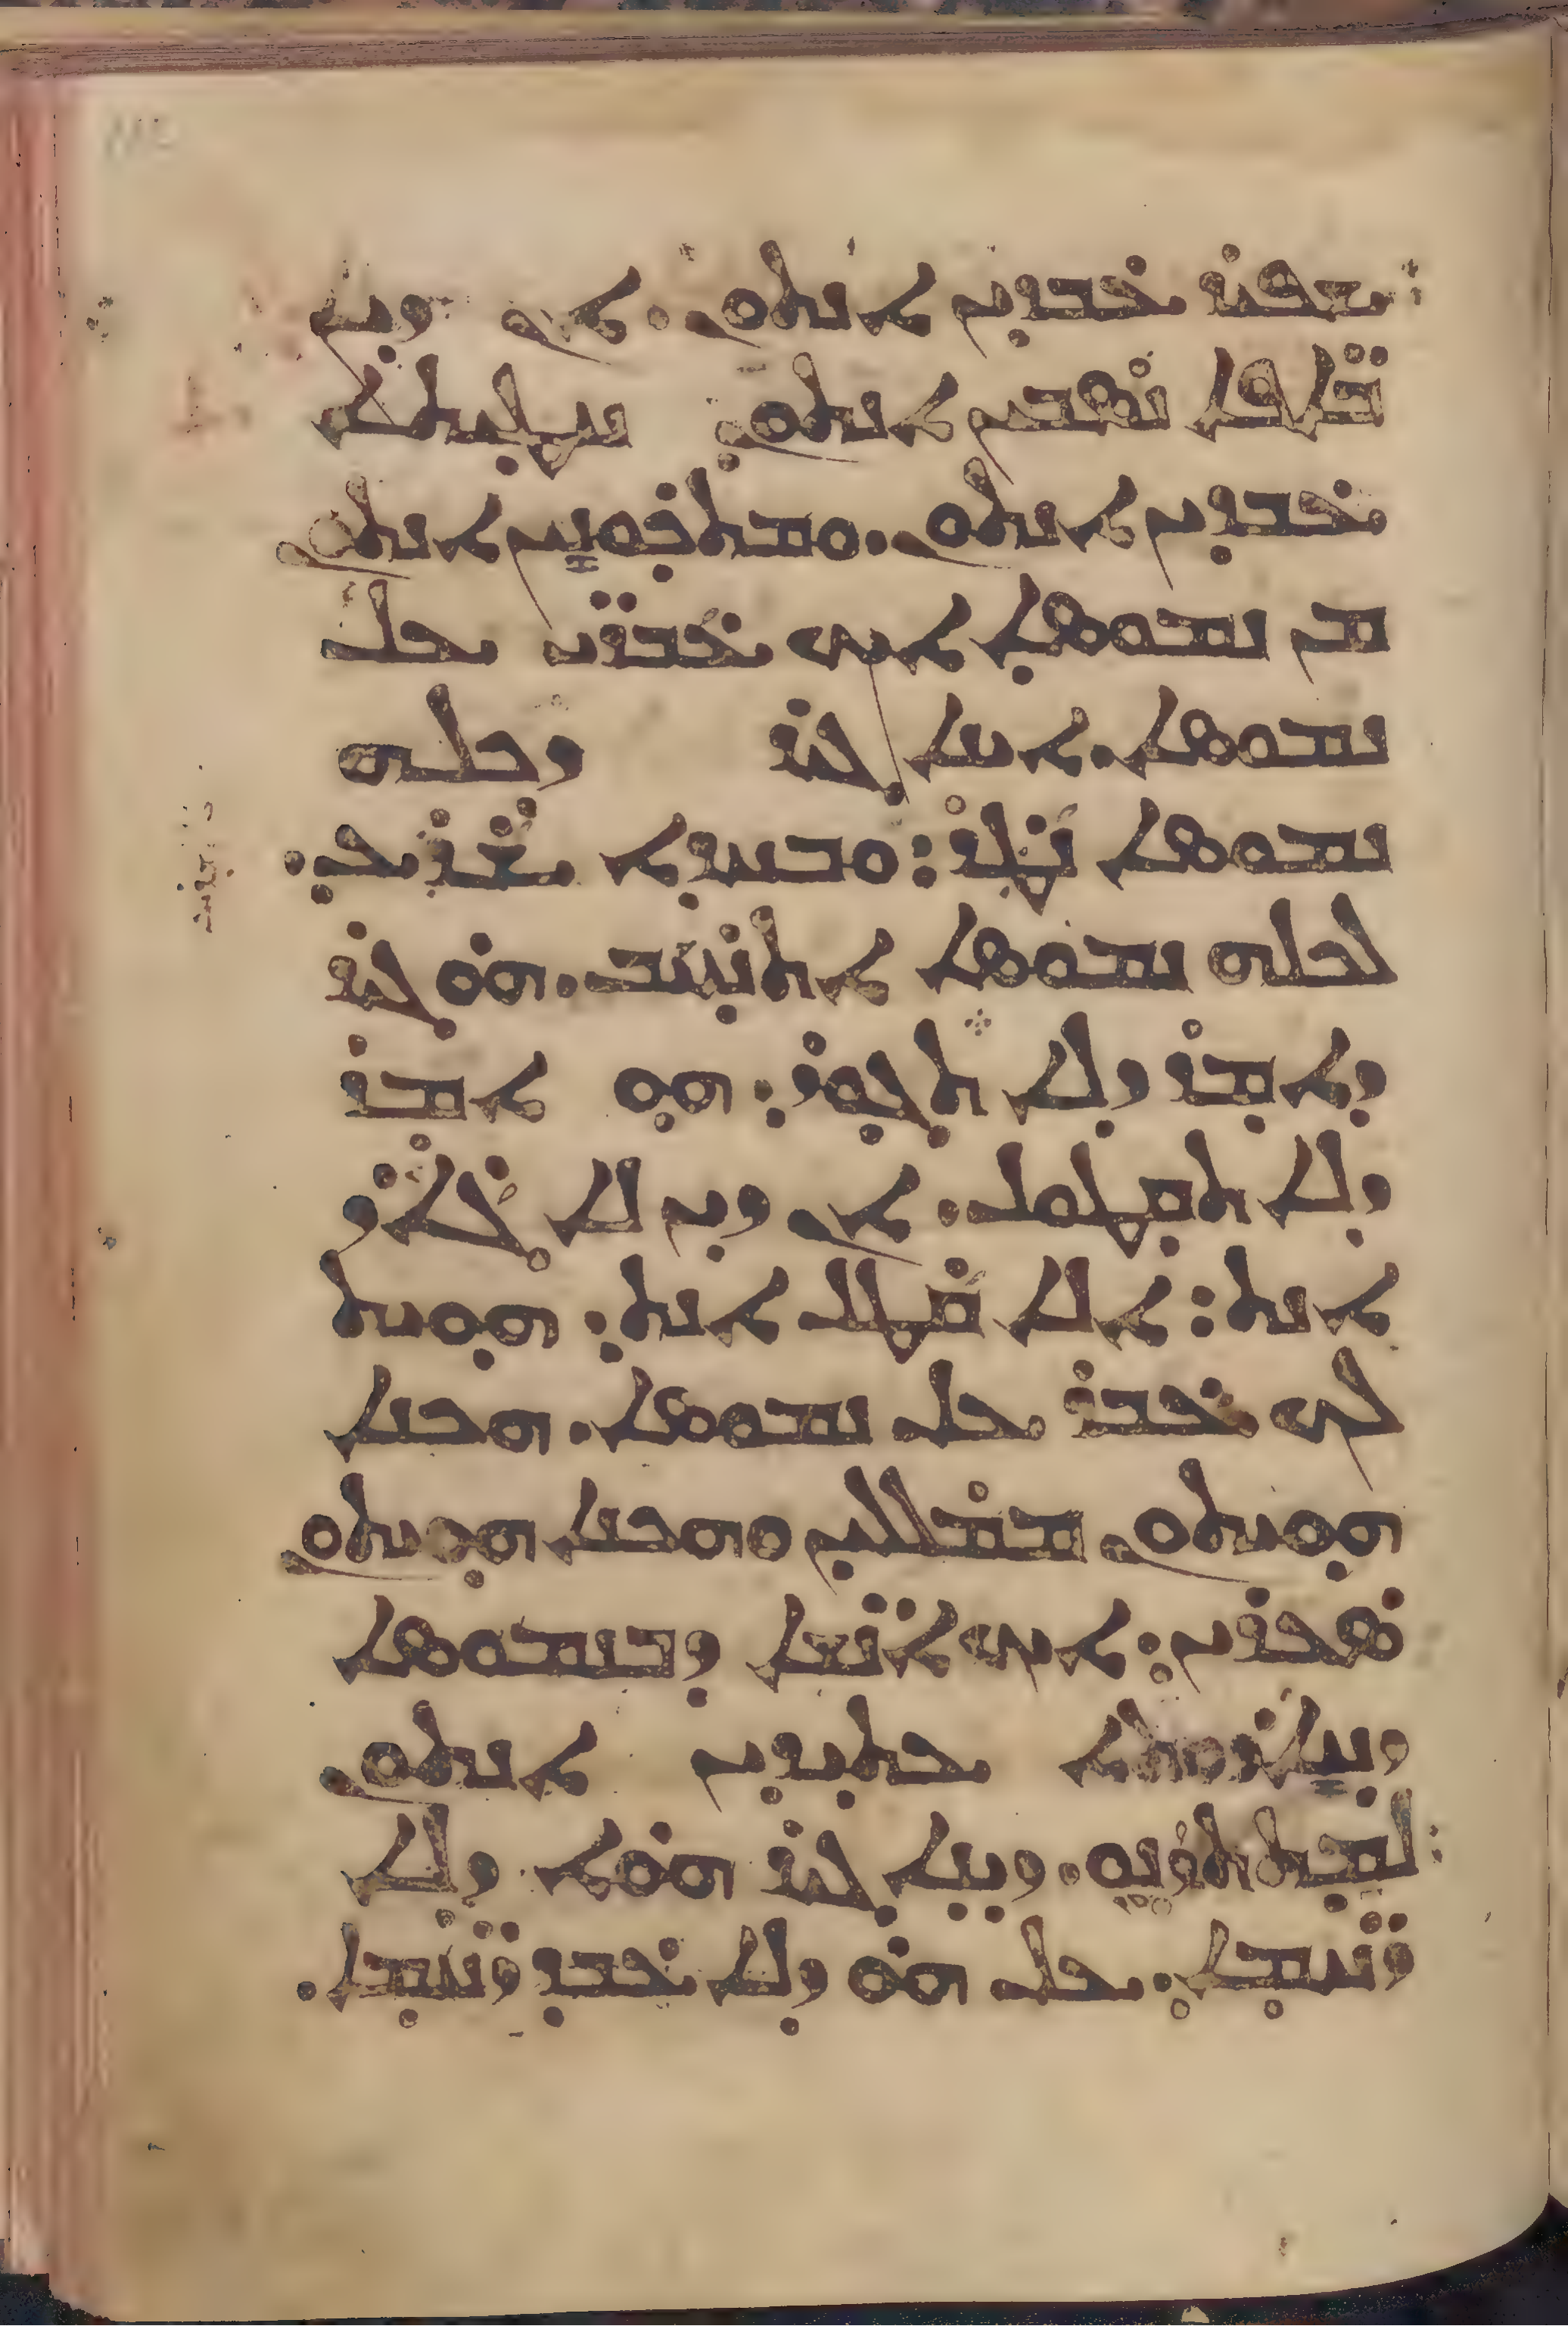 ܫܦܝܪ ܥܒܕܝܢ ܐܢܬܘܢ. ܐܢ ܕܝܢ
ܒܐܦ̈ܐ ܢܣܒܝܢ ܐܢܬܘܢ: ܚܛܝܬܐ
ܥܒܕܝܢ ܐܢܬܘܢ. ܘܡܬܟܘܢܝܢ ܐܢܬܘܢ
ܡܢ ܢܡܘܣܐ ܐܝܟ ܥܒܪ̈ܝ ܥܠ
ܢܡܘܣܐ. ܐܝܢܐ ܓܝܪ ܕܟܠܗ
ܢܡܘܣܐ ܢܛܪ: ܘܒܚܕܐ ܫܪܥ.
ܠܟܠܗ ܢܡܘܣܐ ܐܬܚܝܒ. ܗܘ ܓܝܪ
ܕܐܡܪ ܕܠܐ ܬܓܘܪ: ܗܘ ܐܡܪ
ܕܠܐ ܬܩܛܘܠ. ܐܢ ܕܝܢ ܠܐ ܓܐܪ
ܐܢܬ: ܐܠܐ ܩܛܠ ܐܢܬ: ܗܘܝܬ
ܠܟ ܥܒܪ ܥܠ ܢܡܘܣܐ. ܗܟܢܐ
ܗܘܝܬܘܢ ܡܡܠܠܝܢ ܘܗܟܢܐ ܗܘܝܬܘܢ
ܣܥܪܝܢ: ܐܝܟ ܐܢ̈ܫܐ ܕܒܢܡܘܣܐ
ܕܚܐܪܘܬܐ ܥܬܝܕܝܢ ܐܢܬܘܢ
ܠܡܬܬܕܢܘ. ܕܝܢܐ ܓܝܪ ܗܘܐ ܕܠܐ
ܪ̈ܚܡܐ: ܥܠ ܗܘ ܕܠܐ ܥܒܕ ܪ̈ܚܡܐ.